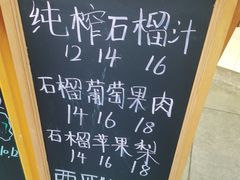 纯榨石榴汁
12 14 16
石榴葡萄果肉
14 16 18
石榴苹果梨
14 16 18